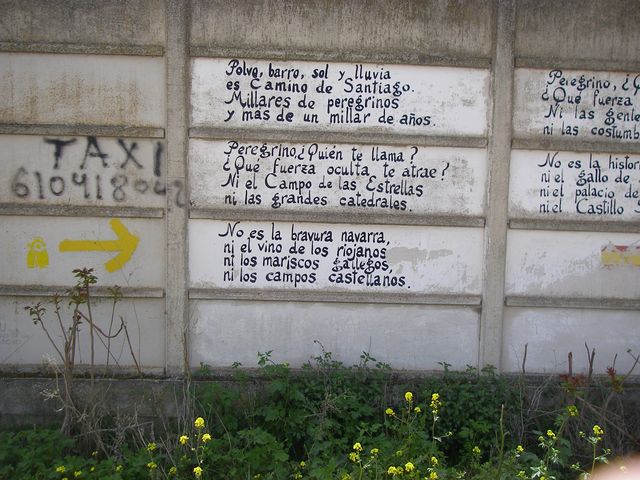 Polvo, barro, sol y lluvia
es Camino de Santiago.
Millares de peregrinos
y más de un millar de años.
Peregrino, ¿Quién te llama?
¿Qué fuerza oculta te atrae?
Ni el Campo de las Estrellas
ni las grandes catedrales.
No es la bravura navarra,
ni el vino de los riojanos
ni los mariscos gallegos,
ni los campos castellanos.
TAXI
Peregrino, ¿Q
¿Qué fuerza
Ni las gente
ni las costumb
No es la histor
ni el gallo de
ni el palacio de
ni el Castillo